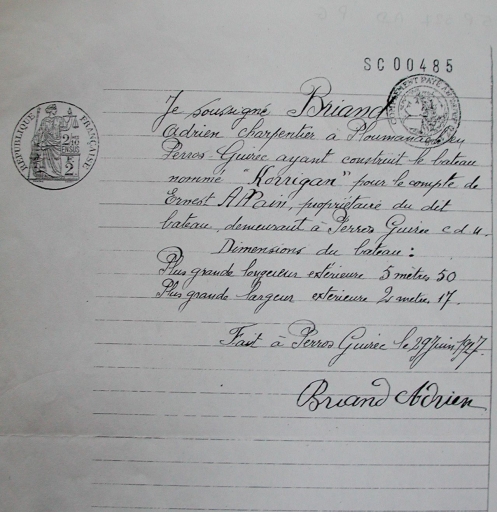 SC00485
RÉPUBLIQUE FRANÇAISE
Je soussigné Briand
Adrien charpentier à Ploumanach en
Perros-Guirec ayant construit le bateau
nommé "Korrigan" pour le compte de
Ernest Allain, propriétaire du dit
bateau, demeurant à Perros Guirec c d u.
Dimensions du bateau :
Plus grande longueur extérieure 5 mètres 50
Plus grande largeur extérieure 2 metres 17.
Fait à Perros Guirec le 29 Juin
Briand Adrien